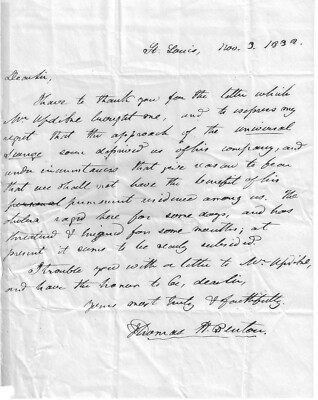 St. Louis, Nov. 3. 1832.
Dear sir,
I have to thank you for the letter which
Mr. Updike brought me, and to express my
regret that the approach of the universal
scourge soon deprived us of his company, and
under circumstances that give reason to fear
that we shall not have the benefit of his
personal permanent residence among us. The
cholera raged here for some days, and has
threatened & lingered for some months; at
present it seems to be nearly subsided.
I trouble you with a letter to Mr. Updike,
and have the honor to be, dear sir,
yours most truly & faithfully.
Thomas H. Benton.